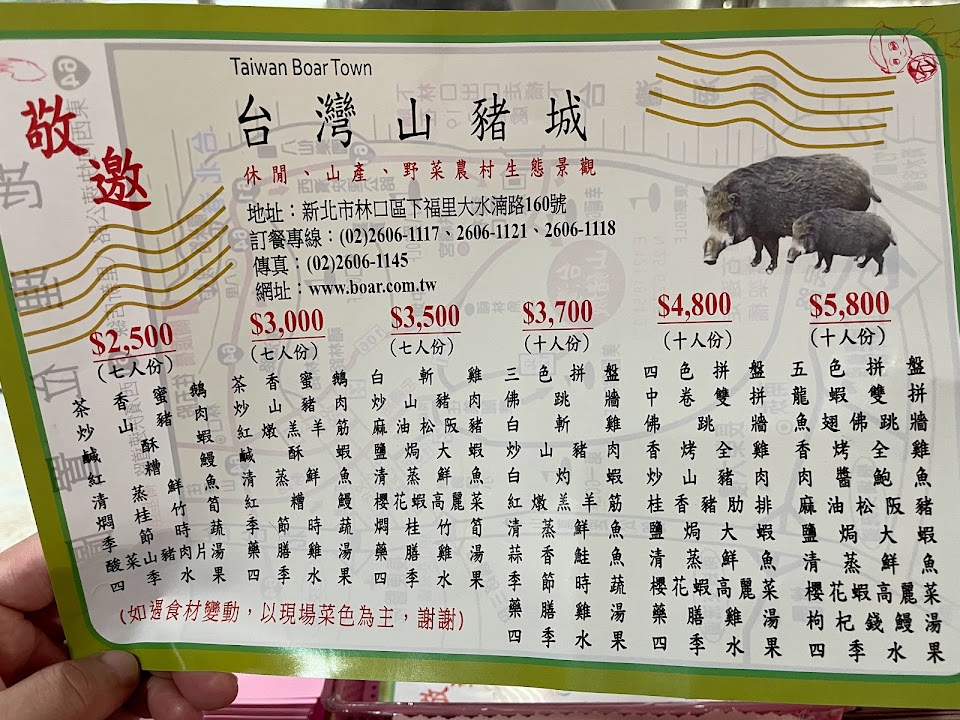 敬邀
Taiwan Boar Town
台灣山豬城
休閒、山產、野菜農村生態景觀
地址：新北市林口區下福里大水湳路160號
訂餐專線：(02)2606-1117、2606-1121、2606-1118
傳真：(02)2606-1145
網址：www.boar.com.tw
$2,500
(七人份)
茶香蜜鵝
炒山豬肉
鹹酥蝦
紅糟鰻
清蒸鮮魚
燜桂竹筍
季節時蔬
酸菜山豬肉片湯
四季水果
$3,000
(七人份)
茶香蜜鵝
炒山豬肉
紅燉羔羊筋
鹹酥蝦
清蒸鮮魚
紅糟鰻
季節時蔬
藥膳雞湯
四季水果
$3,500
(七人份)
白斬雞
炒山豬肉
麻油松阪豬
鹽焗大蝦
清蒸鮮魚
櫻花蝦高麗菜
燜桂竹筍
藥膳雞湯
四季水果
$3,700
(十人份)
三色拼盤
佛跳牆
白斬雞
炒山豬肉
白灼蝦
紅燉羔羊筋
清蒸鮮魚
蒜香鮭魚
季節時蔬
藥膳雞湯
四季水果
$4,800
(十人份)
四色拼盤
中卷雙拼
佛跳牆
香烤全雞
炒山豬肉
桂香豬肋排
鹽焗大蝦
清蒸鮮魚
櫻花蝦高麗菜
藥膳雞湯
四季水果
$5,800
(十人份)
五色拼盤
龍蝦雙拼
魚翅佛跳牆
香烤全雞
肉醬鮑魚
麻油松阪豬
鹽焗大蝦
清蒸鮮魚
櫻花蝦高麗菜
枸杞錢鰻湯
四季水果
(如遇食材變動，以現場菜色為主，謝謝)